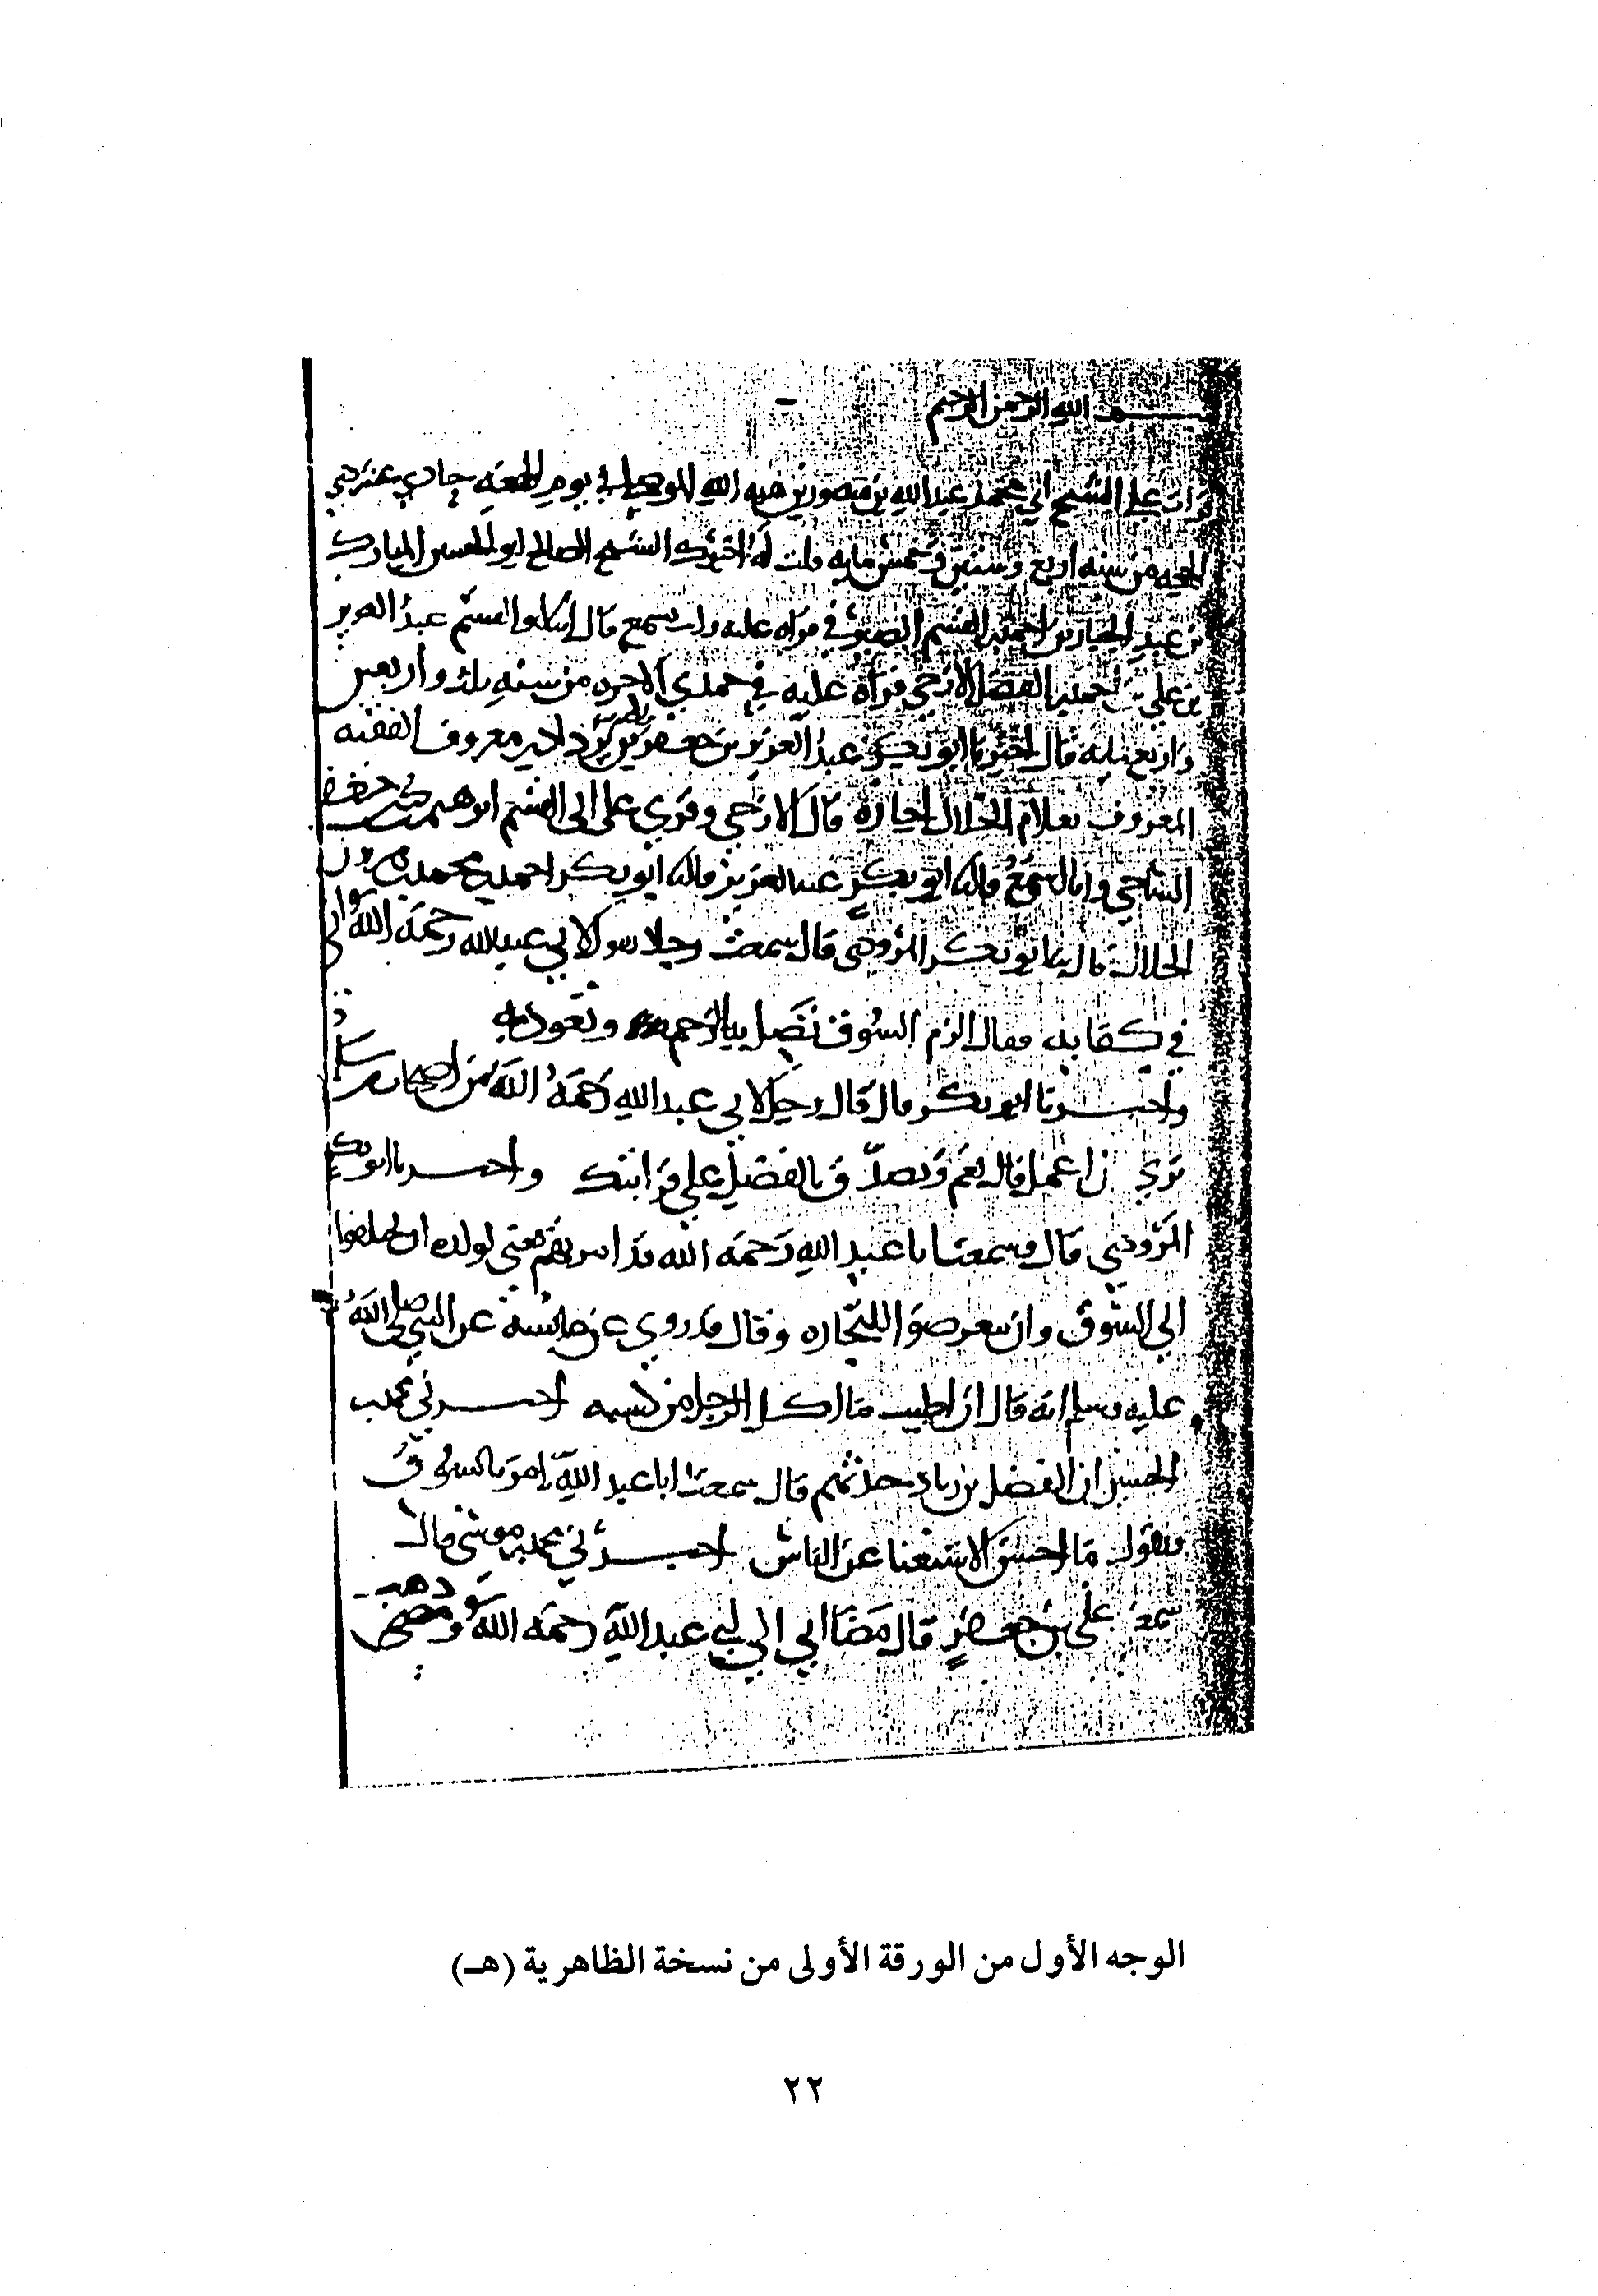 بسم الله الرحمن الرحيم
قرات على الشيخ ابي محمد عبد الله بن منصور بن هبه الله الموصلي في يوم الجمعه حادي عشر ذي
الحجه من سنه اربع وستين وخمس مايه قلت له اخبرك الشيخ الصالح ابو الحسين المبارك
بن عبد الجبار بن احمد بن القسم الصيرفي قراه عليه وانت تسمع قال انبا ابو القسم عبد العزيز
بن علي بن احمد بن الفضل الازجي قراه عليه في جمدي الاخره من سنه ثلث واربعين
واربع مايه قال اخبرنا ابو بكر عبد العزيز بن جعفر بن يزداد بن معروف الفقيه
المعروف بغلام الخلال اجازه قال الازجي وقري على ابي القسم ابرهيم بن جعفر
الساجي وانا اسمع قال ابو بكر عبد العزيز قال ابو بكر احمد بن محمد بن هرون
الخلال قال ثنا ابو بكر المروذي قال سمعت رجلا يقول لابي عبد الله رحمه الله اني
في كفايه فقال الزم السوق تصل به الرحم وتعود به
واخبرنا ابو بكر قال قال رجل لابي عبد الله رحمه الله من اصحاب
ترى ان اعمل قال نعم وتصدق بالفضل على قرابتك واخبرنا ابو بكر
المروذي قال وسمعت ابا عبد الله رحمه الله قد امرتهم يعني لولده ان يختلفوا
الى السوق وان يتعرضوا للتجاره وقال قد روي عن عايشه عن النبي صلى الله
عليه وسلم انه قال ان اطيب ما اكل الرجل من كسبه اخبرني محمد بن
الحسين ان الفضل بن زياد حدثهم قال سمعت ابا عبد الله يامر بالسوق
ويقول ما احسن الاستغنا عن الناس اخبرني محمد بن موسى قال
سمعت علي بن جعفر قال مضا ابي الى ابي عبد الله رحمه الله وذهب
الوجه الأول من الورقة الأولى من نسخة الظاهرية (هـ)
٢٢